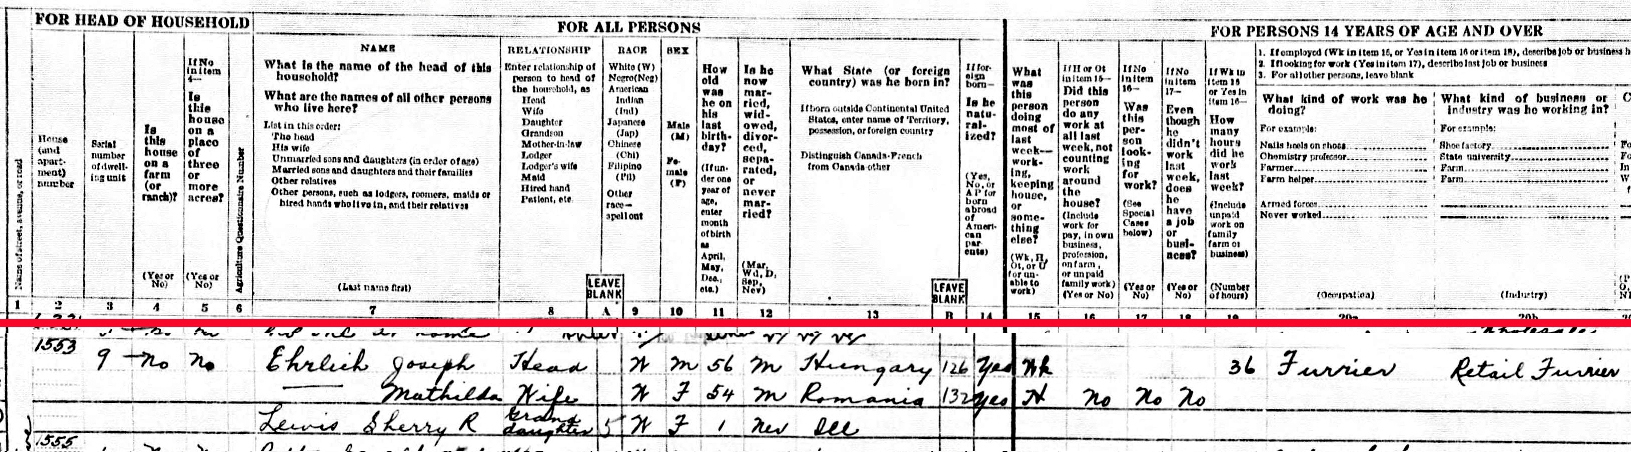 FOR HEAD OF HOUSEHOLD
FOR ALL PERSONS
FOR PERSONS 14 YEARS OF AGE AND OVER
Name of street, avenue, or road
House (and apartment) number
Serial number of dwelling unit
Is this house on a farm (or ranch)?
(Yes or No)
If No in item 4—
Is this house on a place of three or more acres?
(Yes or No)
Agriculture Questionnaire Number
NAME
What is the name of the head of this household?
What are the names of all other persons who live here?
List in this order:
The head
His wife
Unmarried sons and daughters (in order of age)
Married sons and daughters and their families
Other relatives
Other persons, such as lodgers, roomers, maids or hired hands who live in, and their relatives
(Last name first)
RELATIONSHIP
Enter relationship of person to head of the household, as
Head
Wife
Daughter
Grandson
Mother-in-law
Lodger
Lodger's wife
Maid
Hired hand
Patient, etc
LEAVE BLANK
RACE
White (W)
Negro (Neg)
American Indian (Ind)
Japanese (Jap)
Chinese (Chi)
Filipino (Fil)
Other race—spell out
SEX
Male (M)
Female (F)
How old was he on his last birthday?
(If under one year of age, enter month of birth as April, May, Dec., etc.)
Is he now married, widowed, divorced, separated, or never married?
(Mar, Wd, D, Sep, Nev)
What State (or foreign country) was he born in?
If born outside Continental United States, enter name of Territory, possession, or foreign country
Distinguish Canada-French from Canada-other
LEAVE BLANK
If foreign born—
Is he naturalized?
(Yes, No, or AP for born abroad of American parents)
What was this person doing most of last week—working, keeping house, or something else?
(Wk, H, Ot, or U for unable to work)
If H or Ot in item 15—
Did this person do any work at all last week, not counting work around the house?
(Include work for pay, in own business, profession, on farm, or unpaid family work)
(Yes or No)
If No in item 16—
Was this person looking for work?
(See Special Cases below)
(Yes or No)
If No in item 17—
Even though he didn't work last week, does he have a job or business?
(Yes or No)
If Wk in item 15 or Yes in item 16—
How many hours did he work last week?
(Include unpaid work on family farm or business)
(Number of hours)
1. If employed (Wk in item 15, or Yes in item 16 or item 18), describe job or business h
2. If looking for work (Yes in item 17), describe last job or business
3. For all other persons, leave blank
What kind of work was he doing?
For example:
Nails heels on shoes
Chemistry professor
Farmer
Farm helper
Armed forces
Never worked
(Occupation)
What kind of business or industry was he working in?
For example:
Shoe factory
State university
Farm
Farm
(Industry)
1 2 3 4 5 6 7 8 A 9 10 11 12 13 B 14 15 16 17 18 19 20a 20b
1553 9 No No Ehrlich Joseph Head W M 56 M Hungary 126 Yes Wk 36 Furrier Retail Furrier
— Mathilda Wife W F 54 M Romania 132 Yes H No No No
Lewis Sherry R Grand daughter 5 W F 1 Nev Ill
1555